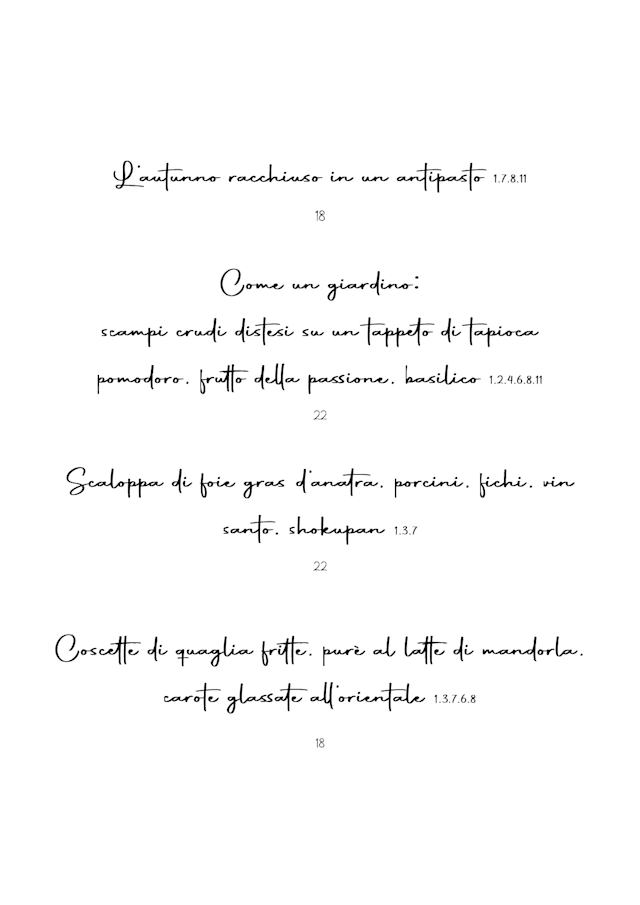 L'autunno racchiuso in un antipasto 1.7.8.11
18
Come un giardino:
scampi crudi distesi su un tappeto di tapioca
pomodoro, frutto della passione, basilico 1.2.4.6.8.11
22
Scaloppa di foie gras d'anatra, porcini, fichi, vin
santo, shokupan 1.3.7
22
Coscette di quaglia fritte, purè al latte di mandorla,
carote glassate all'orientale 1.3.7.6.8
18